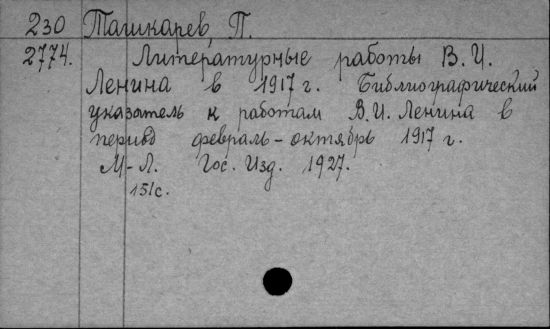 230 Ташкарев, П.
2774. Литературные работы В. И.
Ленина в 1917 г. Библиографический
указатель к работам В. И. Ленина в
период февраль - октябрь 1917 г.
М-Л. Гос. Изд. 1927.
151с.